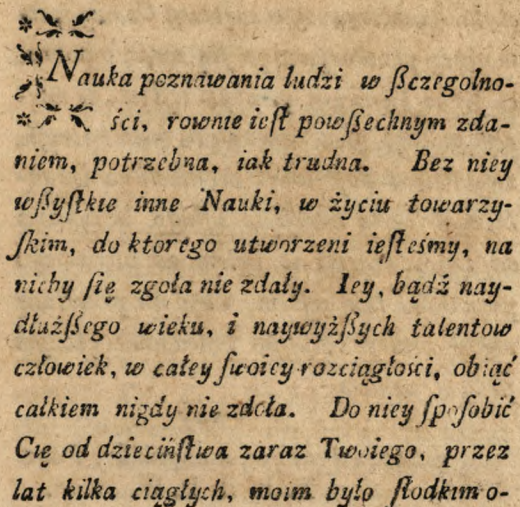 Nauka poznawania ludzi w ßczegolno-
ści, rownie ieſt powßechnym zda-
niem, potrzebna, iak trudna. Bez niey
wßyſtkie inne Nauki, w życiu towarzy-
ſkim, do ktorego utworzeni ieſteśmy, na
nicby ſię zgoła nie zdały. Iey, bądź nay-
dłużßego wieku, i naywyżßych talentow
człowiek, w całey ſwoiey rozciągłości, obiąć
całkiem nigdy nie zdoła. Do niey ſpoſobić
Cię od dziecińſtwa zaraz Twoiego, przez
lat kilka ciągłych, moim było ſłodkim o-